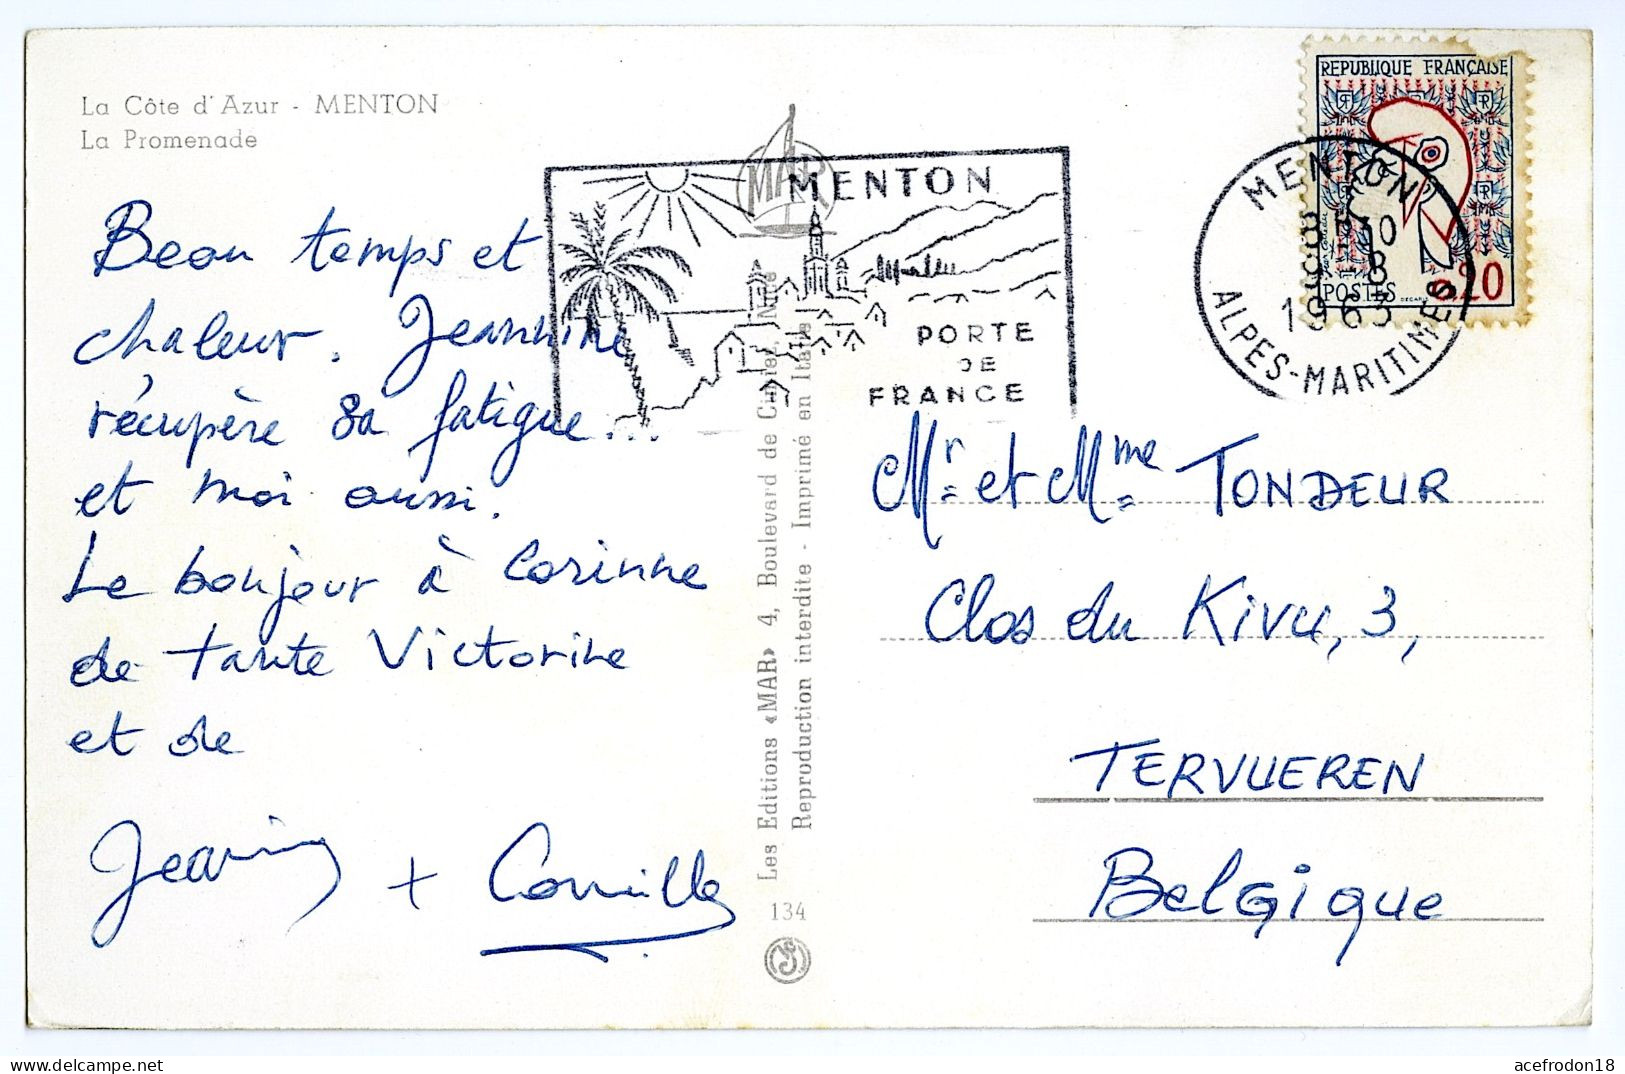 La Côte d'Azur - MENTON
La Promenade
Beau temps et
chaleur. Jeannine
récupère sa fatigue...
et moi aussi.
Le bonjour à Corinne
de tante Victorine
et de
Jeannine + Camille
MAR
MENTON
PORTE
DE
FRANCE
REPUBLIQUE FRANÇAISE
POSTES
DECARIS
0,20
MENTON
18H30
9-8
1963
ALPES-MARITIMES
Mr et Mme TONDEUR
Clos du Kivu, 3,
TERVUEREN
Belgique
Les Editions «MAR» 4, Boulevard de Cimiez, Nice
Reproduction interdite - Imprimé en Italie
134
acefrodon18
delcampe.net